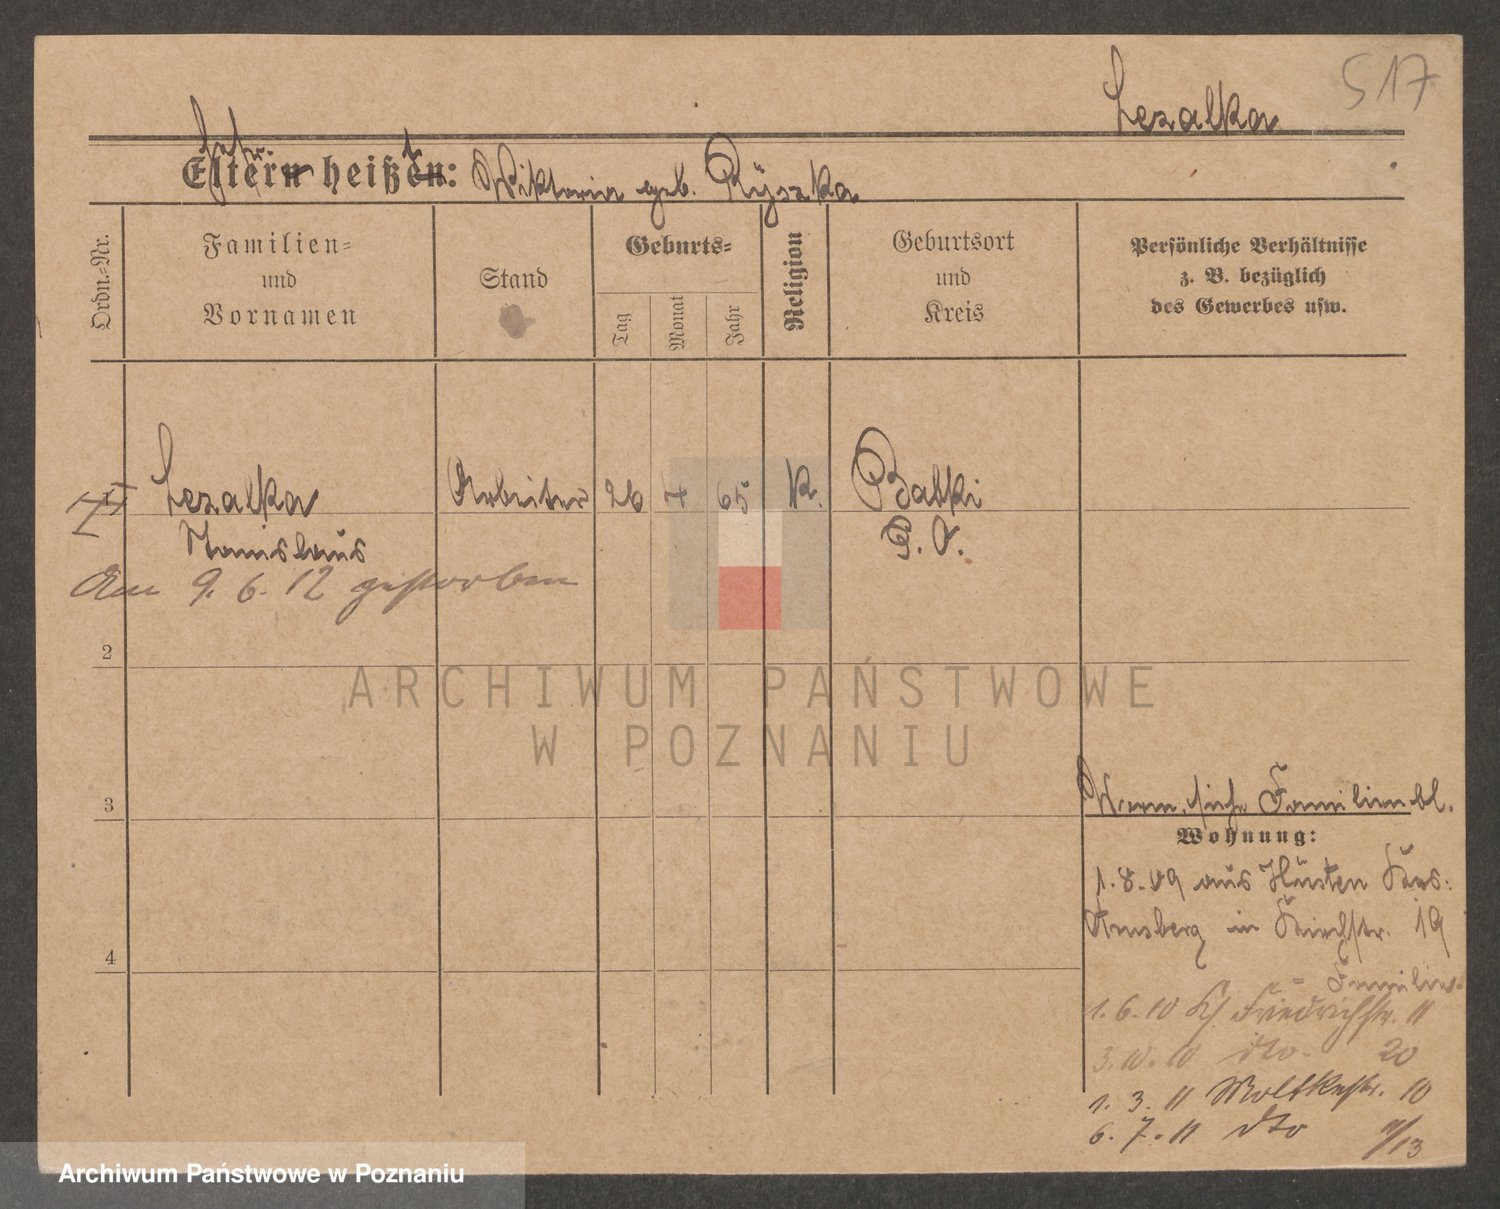 517
Lezalka
Eltern heißen: Wiktoria geb. Ryszka
Ordn.-Nr.
Familien-
und
Vornamen
Stand
Geburts-
Tag
Monat
Jahr
Religion
Geburtsort
und
Kreis
Persönliche Verhältnisse
z. B. bezüglich
des Gewerbes usw.
Lezalka Arbeiter 26 4 65 K. Babki
Stanislaus P. O.
Am 9. 6. 12 gestorben
2
3
4
siehe Familienbl.
Wohnung:
1. 8. 09 aus Hüsten Krs.
Arnsberg in Kirchstr. 19
1. 6. 10 Friedrichstr. 11
3. 10. 10 dto. 20
1. 3. 11 Moltkestr. 10
6. 7. 11 dto 11/13
ARCHIWUM PAŃSTWOWE
W POZNANIU
Archiwum Państwowe w Poznaniu